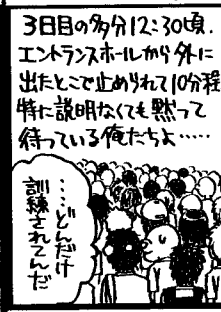 3日目の多分12:30頃.
エントランスホールから外に
出たとこで止められて10分程
特に説明なくても黙って
待っている俺たちよ……
…‥どんだけ
訓練されてんだ